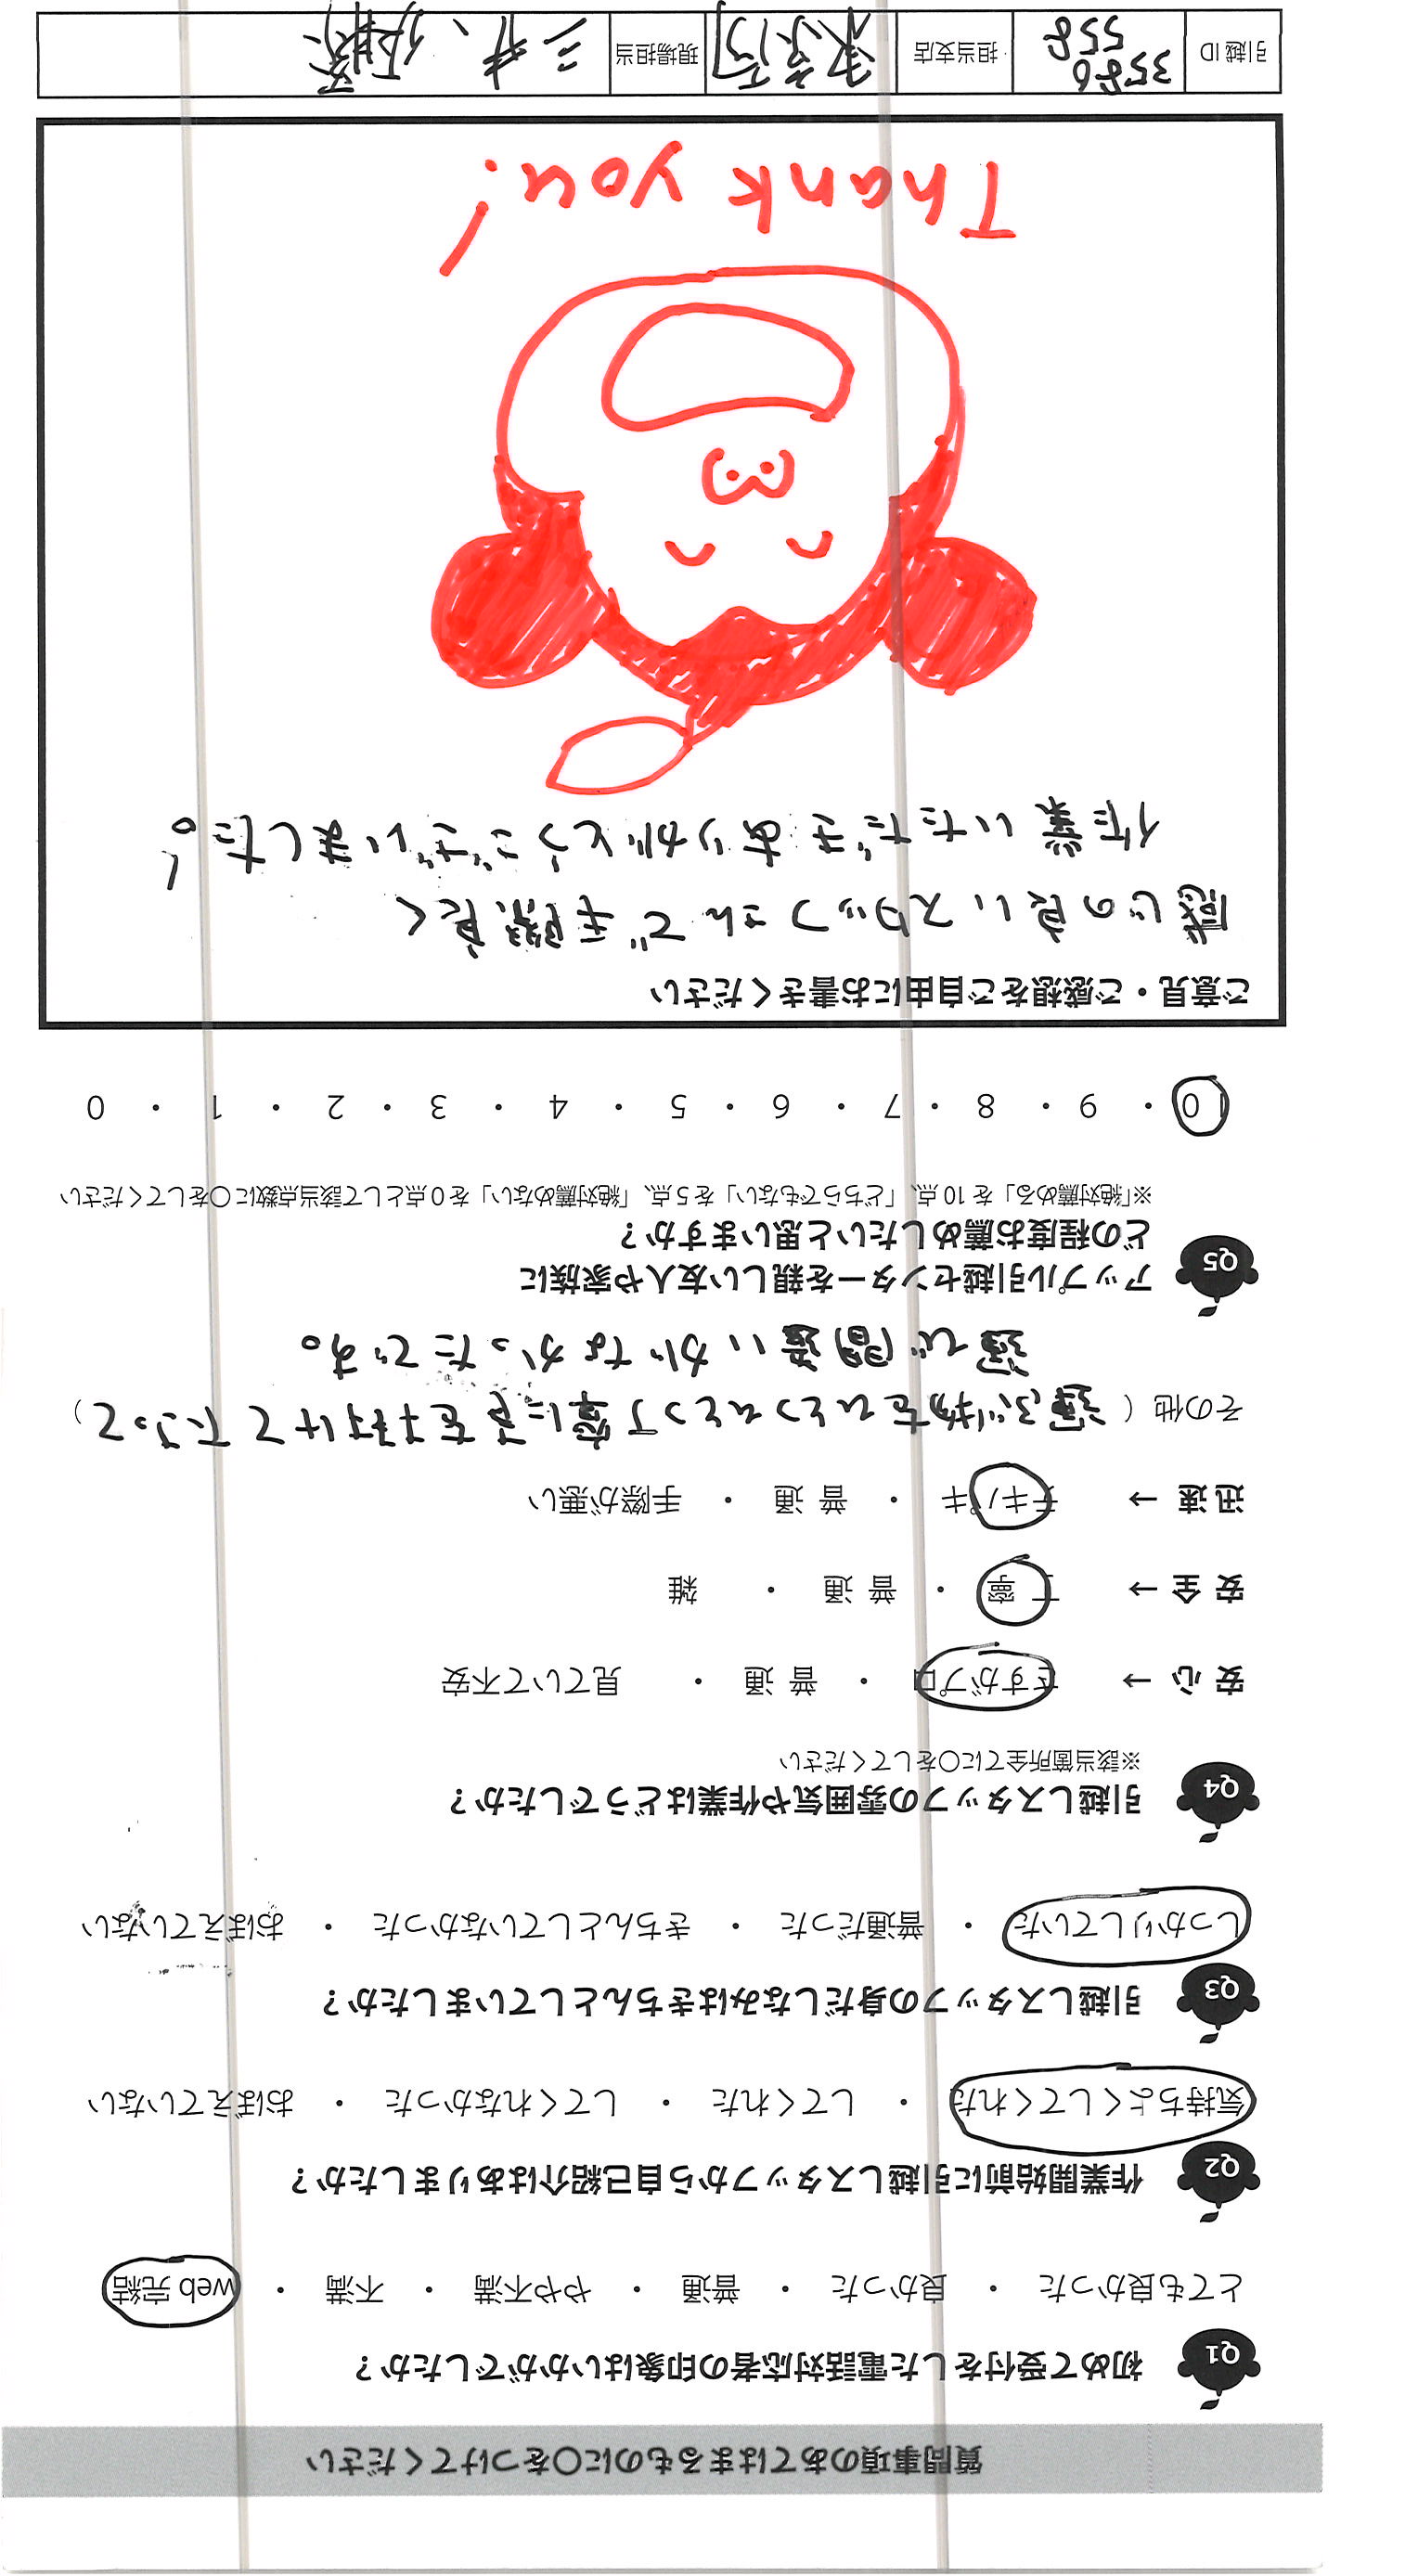 質問事項のあてはまるものに○をつけてください
Q1 初めて受付をした電話対応者の印象はいかがでしたか？
とても良かった ・ 良かった ・ 普通 ・ やや不満 ・ 不満 ・ web 完結
Q2 作業開始前に引越しスタッフから自己紹介はありましたか？
気持ちよくしてくれた ・ してくれた ・ してくれなかった ・ おぼえていない
Q3 引越しスタッフの身だしなみはきちんとしていましたか？
しっかりしていた ・ 普通だった ・ きちんとしていなかった ・ おぼえていない
Q4 引越しスタッフの雰囲気や作業はどうでしたか？
※該当箇所全てに○をしてください
安心 → さすがプロ ・ 普通 ・ 見ていて不安
安全 → 丁寧 ・ 普通 ・ 雑
迅速 → テキパキ ・ 普通 ・ 手際が悪い
その他（運ぶ物をひとつひとつ丁寧に番号を付けて下さって）
運び間違いがなかったです。
Q5 アップル引越センターを親しい友人や家族に
どの程度お薦めしたいと思いますか？
※「絶対薦める」を 10 点、「どちらでもない」を 5 点、「絶対薦めない」を 0 点として該当点数に○をしてください
10 ・ 9 ・ 8 ・ 7 ・ 6 ・ 5 ・ 4 ・ 3 ・ 2 ・ 1 ・ 0
ご意見・ご感想をご自由にお書きください
感じの良いスタッフさんで手際良く
作業いただきありがとうございました。
Thank you!
引越 ID 3580 558 担当支店 現場担当 三井、佐藤